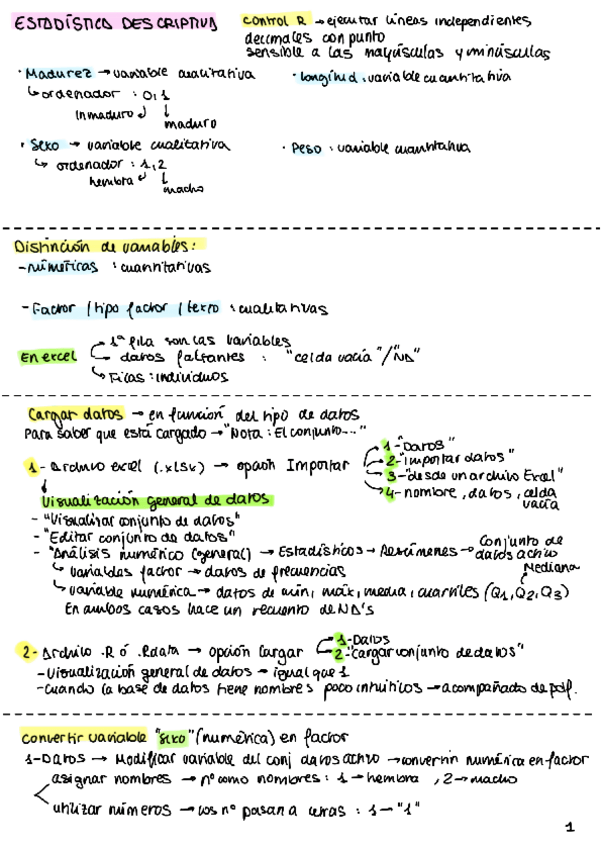 ESTADÍSTICA DESCRIPTIVA
Control R → ejecutar líneas independientes
decimales con punto
sensible a las mayúsculas y minúsculas
· Madurez → variable cualitativa
· Longitud : variable cuantitativa
↳ ordenador : 0, 1
inmaduro ↲ ↓
maduro
· Sexo → variable cualitativa
· Peso : variable cuantitativa
↳ ordenador : 1, 2
hembra ↲ ↓
macho
Distinción de variables:
- numéricas : cuantitativas
- Factor / tipo factor / texto : cualitativas
1ª fila son las variables
En excel datos faltantes : "celda vacía" / "NA"
↳ Filas : individuos
Cargar datos → en función del tipo de datos
Para saber que está cargado → "Nota : El conjunto..."
1- Archivo excel (.xlsx) → opción Importar
1- "Datos"
2- "importar datos"
3- "desde un archivo Excel"
4- nombre, datos, celda vacía
↓
Visualización general de datos
- "Visualizar conjunto de datos"
- "Editar conjunto de datos"
- "Análisis numérico (general) → Estadísticos → Resúmenes → Conjunto de datos activo
↳ variables factor → datos de frecuencias
Mediana
↳ variable numérica → datos de min, máx, media, cuartiles (Q1, Q2, Q3)
En ambos casos hace un recuento de NA's
2- Archivo .R ó .Rdata → opción Cargar
1- Datos
2- "Cargar conjunto de datos"
- Visualización general de datos → igual que 1
- Cuando la base de datos tiene nombres poco intuiticos → acompañado de pdf.
Convertir variable "sexo" (numérica) en factor
1- Datos → Modificar variable del conj datos activo → convertir numérica en factor
asignar nombres → nº como nombres : 1 → hembra , 2 → macho
utilizar números → los nº pasan a letras : 1 → "1"
1